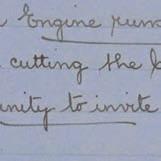 Engine runs
cutting the
to invite